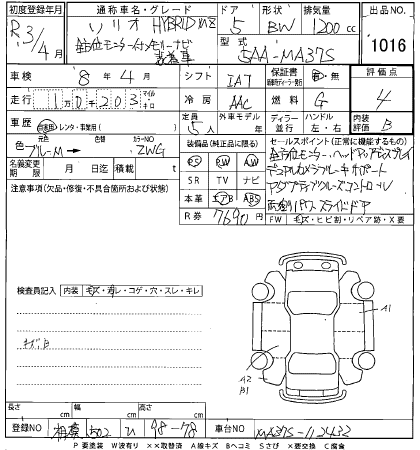 初度登録年月 通称車名・グレード ドア 形状 排気量 出品NO
R3/4月 ソリオ HYBRID MZ 5 BW 1200cc 1016
全方位モニター付メモリーナビ装着車
型式 5AA-MA37S
車検 8年4月 シフト IAT 保証書 有・無 評価点
走行 10203 マイル キロ 冷房 AAC 燃料 G 4
車歴 自家用 レンタ・事業用( ) 定員 5人 外車モデル 年 ディーラー 並行 ハンドル 左・右 内装評価 B
色 元色 ブルーM → 色替 カラーNO ZWG
名義変更期限 月 日 積載 t
装備品(純正品に限る) PS PW AW
SR TV ナビ
本革 エアB ABS
R券 7690円
セールスポイント(正常に機能するもの)
全方位モニター、ヘッドアップディスプレイ
デュアルカメラブレーキサポート
アダプティブクルーズコントロール
両側パワースライドドア
FW キズ・ヒビ割・リペア跡・X要
注意事項(欠品・修復・不具合箇所および状態)
検査員記入 内装 キズ・汚レ・コゲ・穴・スレ・キレ
キズ・凹
A1
A2
B1
長さ cm 幅 cm 高さ cm
登録NO 相模 502 ひ 98-78 車台NO MA37S-112432
P要塗装 W波有り ××取替済 A線キズ Bヘコミ Sさび ×要交換 C腐食